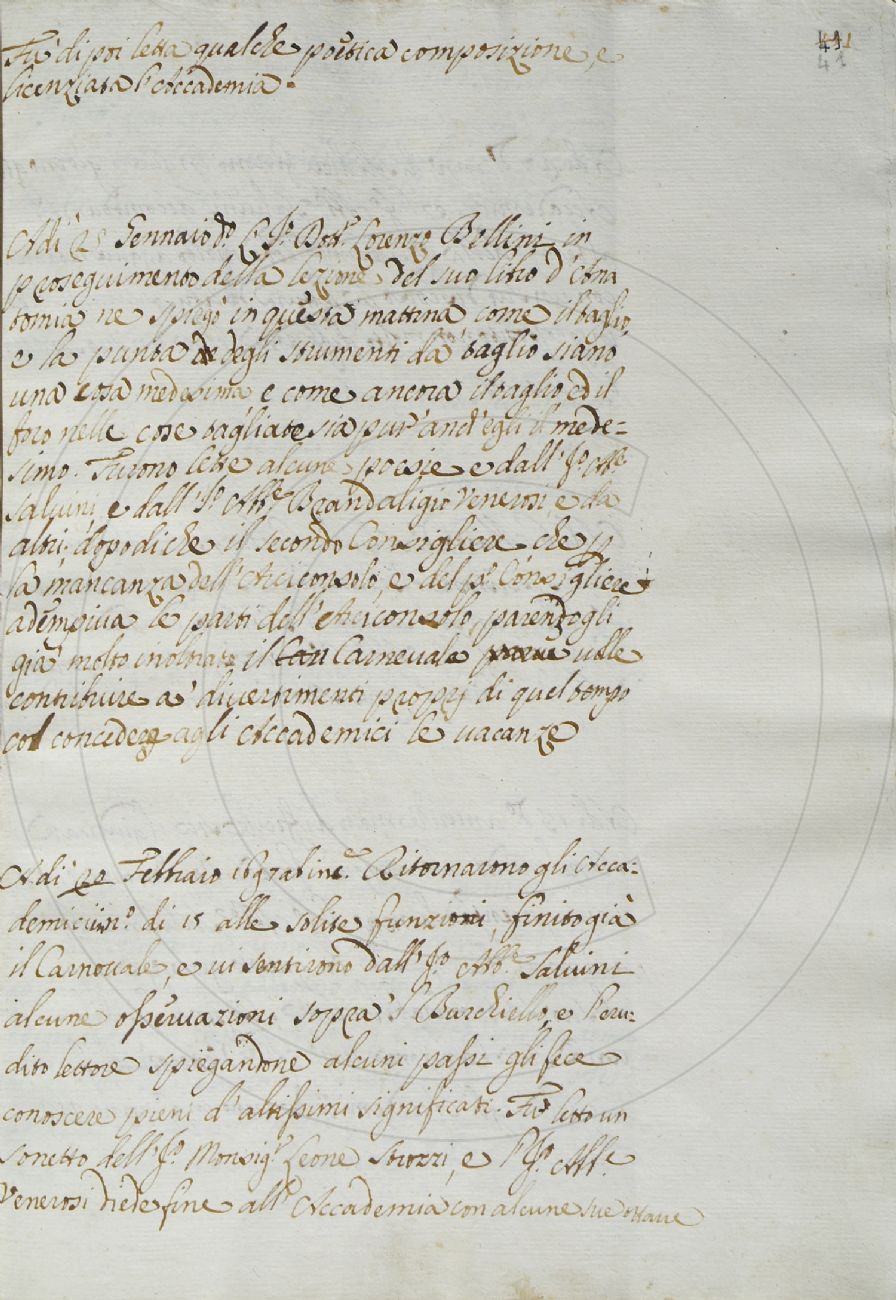 41
41
Fu' di poi letta qualche poetica composizione, e
licenziata l'Accademia.
Adì 28 Gennaio do. Il Sr. Dottr. Lorenzo Bellini in
proseguimento della lezione del suo libro d'Ana
tomia ne spiegò in questa mattina come il taglio,
e la punta de degli strumenti da taglio siano
una cosa medesima e come ancora il taglio ed il
foro nelle cose tagliate sia pur' anch'egli il mede=
simo. Furono lette alcune poesie e dall' Sr. Abe
Salvini e dall' Sr. Abe. Brandaligio Venerosi e da
altri; dopodiche il secondo Consigliere che p
la mancanza dell'Arciconsolo, e del po. Consigliere
adempiva le parti dell'Arciconsolo, parendogli
già molto inoltrato il Can Carnevale volle
contribuire a' divertimenti proprj di quel tempo
col concedere agli Accademici le vacanze
Adì 22 Febbraio ab Ine. Ritornarono gli Acca=
demici in no. di 15 alle solite funzioni, finito già
il Carnovale, e vi sentirono dall' Sr. Abe. Salvini
alcune osservazioni sopra 'l Burchiello, e l'eru=
dito lettore spiegandone alcuni passi gli fece
conoscere pieni d'altissimi significati. Fu letto un
sonetto dell' Sr. Monsigr. Leone Strozzi, e l' Sr. Abe.
Venerosi diede fine all' Accademia con alcune sue ottave